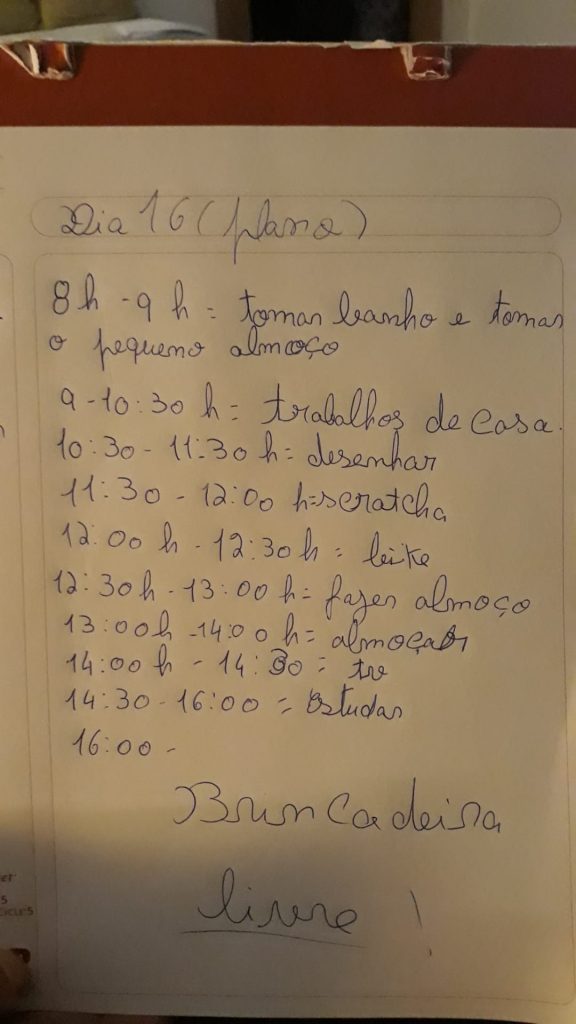 Dia 16 (plano)
8h - 9 h = tomar banho e tomar
o pequeno almoço
9 - 10:30 h = trabalhos de casa.
10:30 - 11:30 h = desenhar
11:30 - 12:00 h = scratcha
12:00 h - 12:30 h =
12:30 h - 13:00 h = fazer almoço
13:00 h - 14:00 h = almoçar
14:00 h - 14:30 = tv
14:30 - 16:00 = Estudar
16:00 -
Brincadeira
livre !